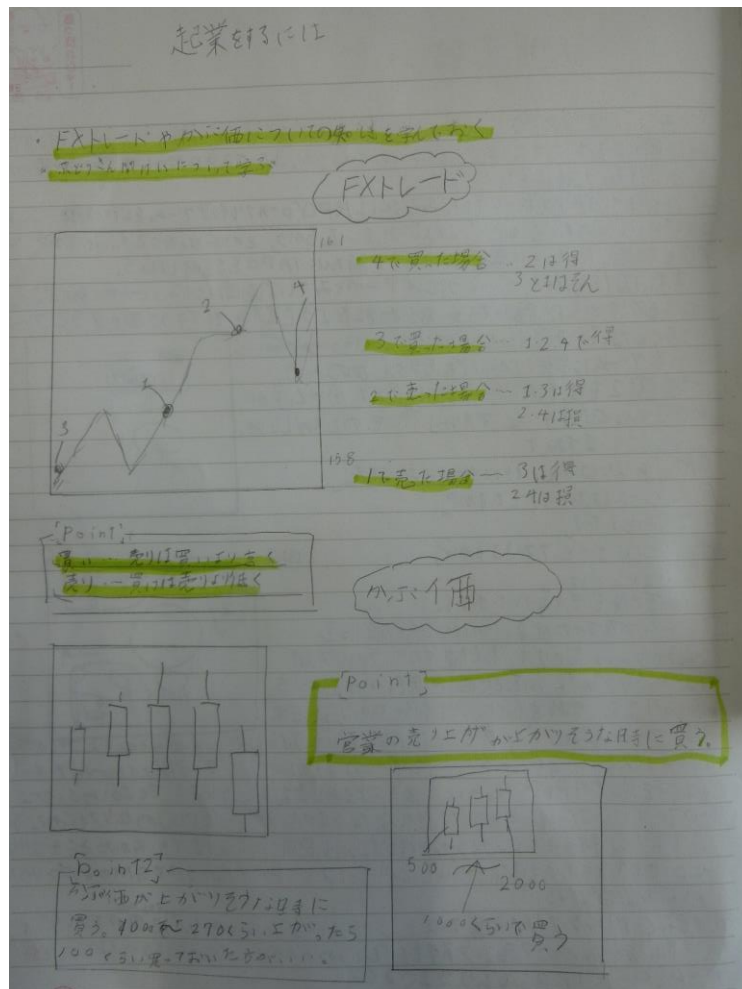 起業をするには
・FXトレードやかぶ価についての知しきを学んでおく
・について学ぶ
FXトレード
161
4で買った場合…2は得
3と1はそん
3で買った場合…1.2.4で得
2で売った場合…1.3は得
2.4は損
1で売った場合…3は得
2 4は損
158
1
2
3
4
「Point」
買い…売りは買いより高く
売り…買いは売りより低く
かぶ価
「Point」
営業の売り上げが上がりそうな時に買う。
500
2000
1000くらいで買う
「Point2」
価が上がりそうな時に
買う。270くらい上がったら
100くらい買っておいた方がいい。